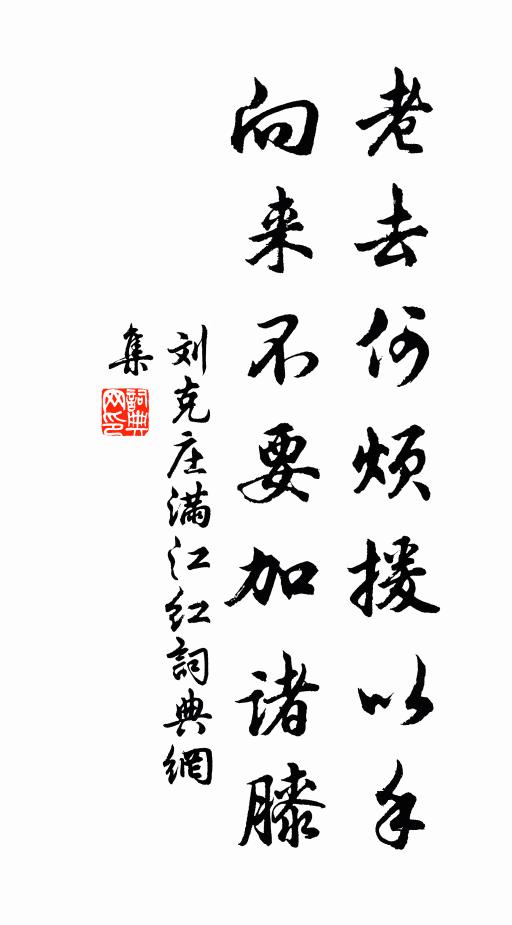 老去何烦援以手
向来不要加诸膝
刘克庄满江红詞典網
集
詞典网印